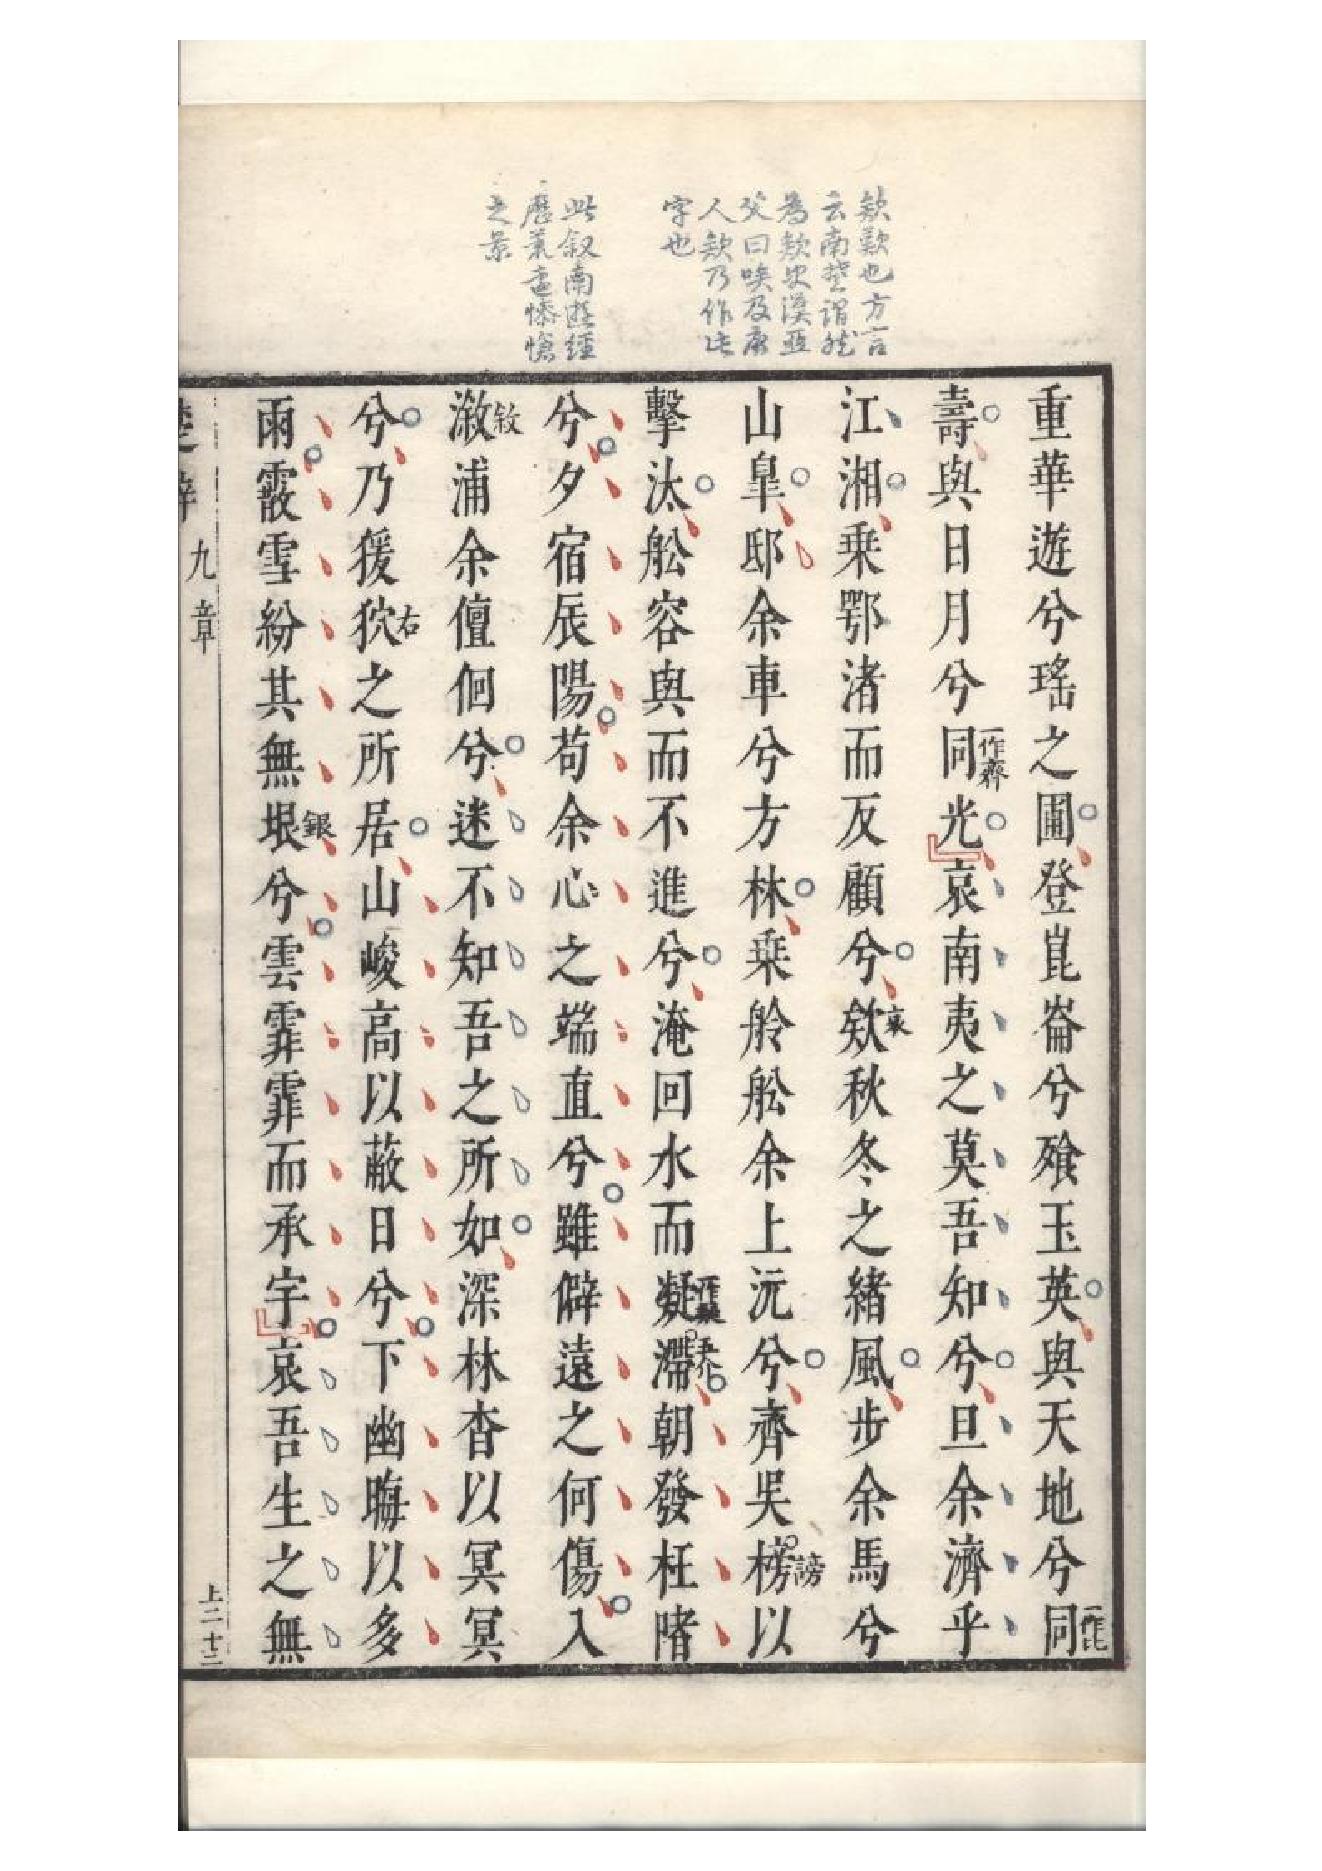 欸歎也方言
云南楚謂然
為欸史漢亞
父曰唉及唐
人欸乃作此
字也
此叙南遊經
歷荒遠慘愴
之景
重華遊兮瑤之圃登崑崙兮飱玉英與天地兮同一作比
壽與日月兮同一作齊光哀南夷之莫吾知兮旦余濟乎
江湘乗鄂渚而反顧兮欸哀秋冬之緒風步余馬兮
山皐邸余車兮方林乗舲舩余上沅兮齊吳榜謗以
擊汰舩容與而不進兮淹回水而凝一作疑滯朝發枉陼
兮夕宿辰陽苟余心之端直兮雖僻遠之何傷入
漵敘浦余儃佪兮迷不知吾之所如深林杳以冥冥
兮乃猨狖右之所居山峻高以蔽日兮下幽晦以多
雨霰雪紛其無垠銀兮雲霏霏而承宇哀吾生之無
楚辭 九章 上二十三